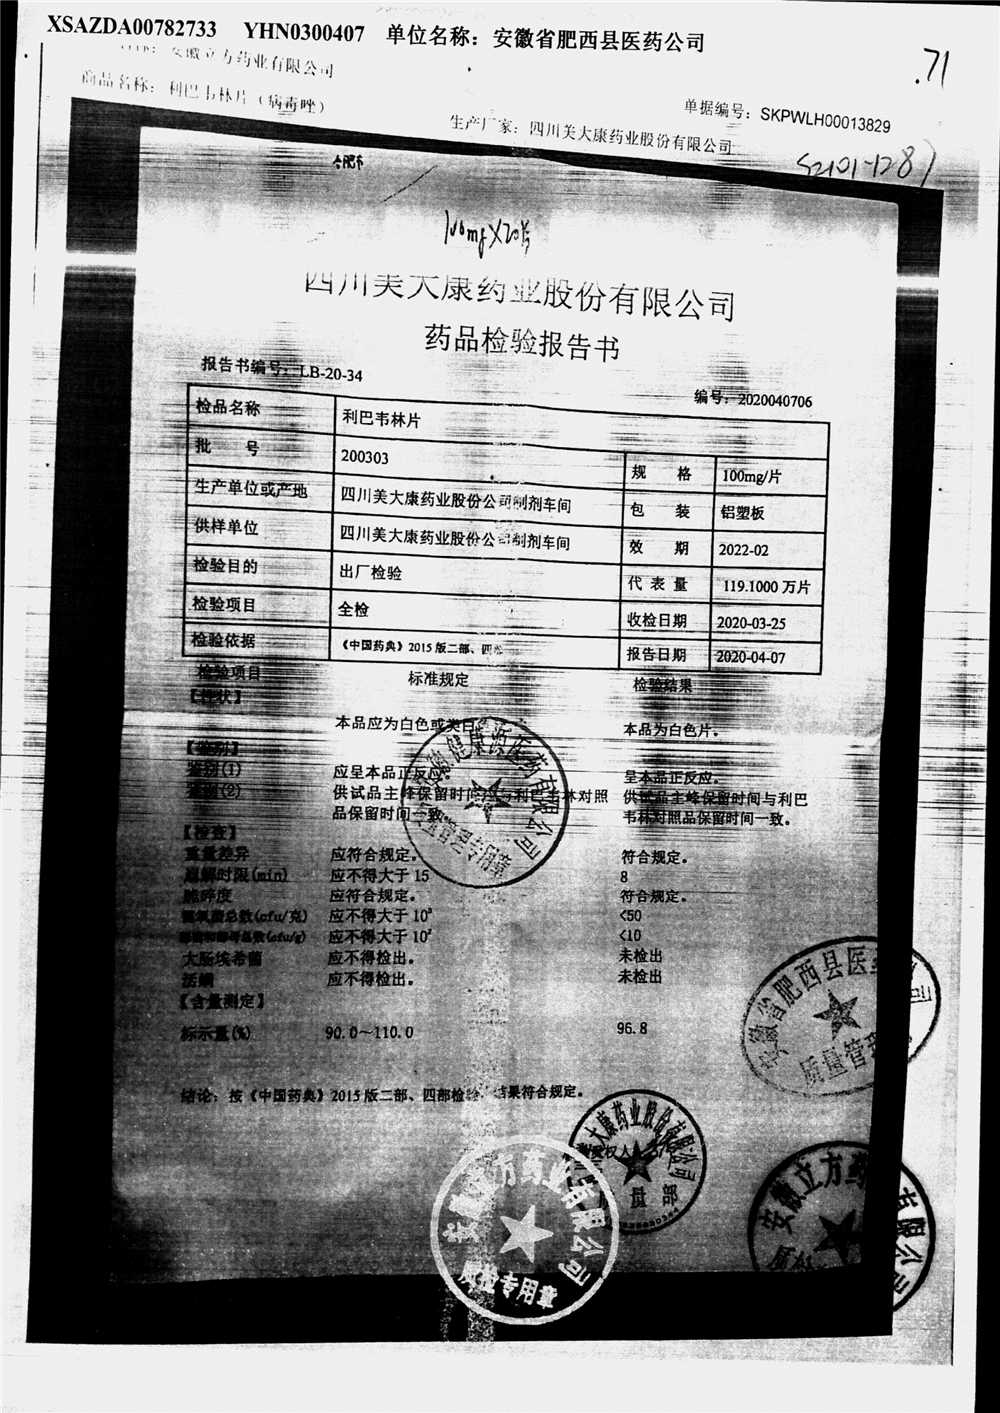 XSAZDA00782733 YHN0300407 单位名称：安徽省肥西县医药公司
安徽立方药业有限公司
.71
商品名称：利巴韦林片（病毒唑）
单据编号：SKPWLH00013829
生产厂家：四川美大康药业股份有限公司
S2101-128
合肥市
100mg×20片
四川美大康药业股份有限公司
药品检验报告书
报告书编号：LB-20-34
编号：2020040706
检品名称 利巴韦林片
批 号 200303 规 格 100mg/片
生产单位或产地 四川美大康药业股份公司制剂车间 包 装 铝塑板
供样单位 四川美大康药业股份公司制剂车间 效 期 2022-02
检验目的 出厂检验 代表量 119.1000 万片
检验项目 全检 收检日期 2020-03-25
检验依据 《中国药典》2015 版二部、四 报告日期 2020-04-07
检验项目 标准规定 检验结果
【性状】
本品应为白色或类白 本品为白色片。
【鉴别】
鉴别(1) 应呈本品正反应。 呈本品正反应。
鉴别(2) 供试品主峰保留时间应与利巴韦林对照 供试品主峰保留时间与利巴
品保留时间一致 韦林对照品保留时间一致。
【检查】
重量差异 应符合规定。 符合规定。
崩解时限(min) 应不得大于 15 8
脆碎度 应符合规定。 符合规定。
需氧菌总数(cfu/克) 应不得大于 10³ <50
(cfu/g) 应不得大于 10² <10
大肠埃希菌 应不得检出。 未检出
活螨 应不得检出。 未检出
【含量测定】
标示量(%) 90.0～110.0 96.8
结论：按《中国药典》2015 版二部、四部检验，结果符合规定。
授权人
健康源医药有限公司
质量管理专用章
安徽省肥西县医药公司
质量管理
美大康药业股份有限公司
质 部
安徽立方药业有限公司
质检专用章
安徽立方药 有限公司
质